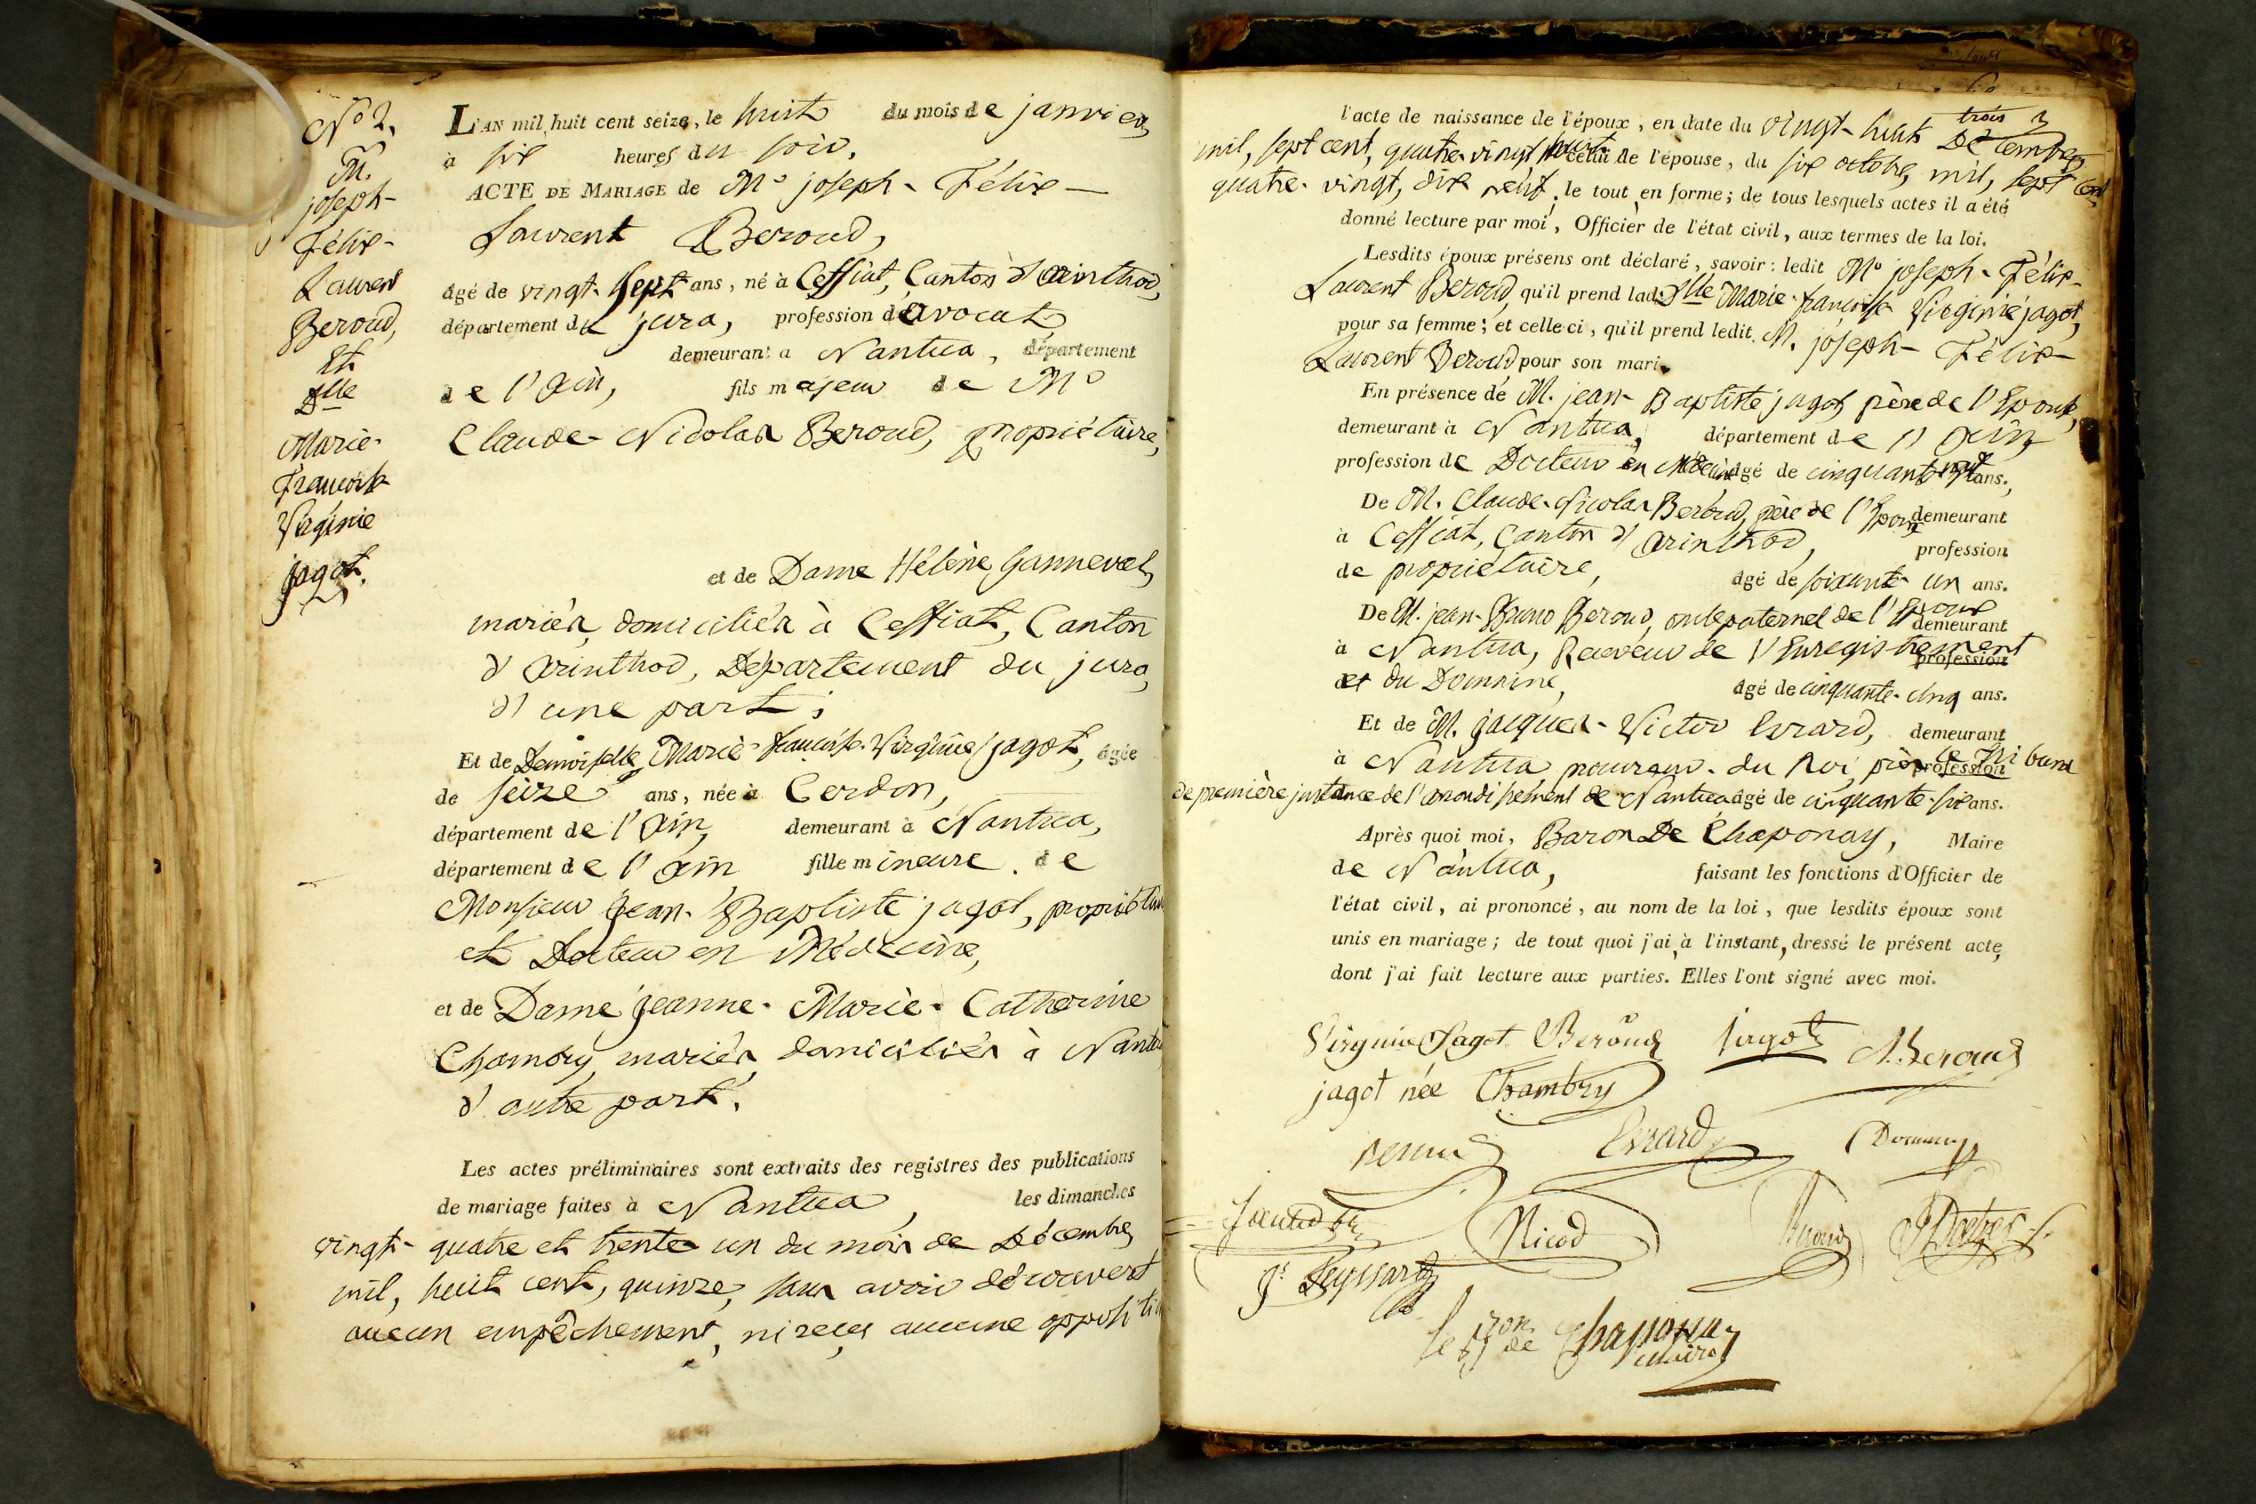 N.º 2.
M.
joseph-
Félix-
Laurent
Beroud,
Et
Dlle
Marie-
Françoise
Virginie
jagot.
L'AN mil huit cent seize, le huit du mois de janvier,
à six heures du soir.
ACTE DE MARIAGE de Mr joseph-Félix-
Laurent Beroud,
âgé de vingt-sept ans, né à Ceffiat, Canton d'arinthod,
département du jura, profession d'avocat
demeurant à Nantua, département
de l'ain, fils majeur de Mr
Claude-Nicolas Beroud, propriétaire,
et de Dame Hélène Ganneval,
mariés, domiciliés à Ceffiat, Canton
d'arinthod, Département du jura,
d'une part;
Et de Demoiselle Marie-françoise-Virginie jagot, âgée
de seize ans, née à Cerdon,
département de l'ain, demeurant à Nantua,
département de l'ain fille mineure de
Monsieur Jean-Baptiste jagot, propriétaire
et Docteur en Médecine,
et de Dame Jeanne-Marie-Catherine
Chambry, mariés, domiciliés à Nantua
d'autre part.
Les actes préliminaires sont extraits des registres des publications
de mariage faites à Nantua, les dimanches
vingt-quatre et trente un du mois de Décembre,
mil, huit cent, quinze, sans avoir découvert
aucun empêchement, ni reçu aucune opposition
l'acte de naissance de l'époux, en date du vingt-huit trois Décembre,
mil, sept cent, quatre-vingt huit celui de l'épouse, du six octobre, mil, sept cent
quatre-vingt, dix neuf; le tout en forme; de tous lesquels actes il a été
donné lecture par moi, Officier de l'état civil, aux termes de la loi.
Lesdits époux présens ont déclaré, savoir: ledit Mr joseph-Félix-
Laurent Beroud, qu'il prend lad. Dlle Marie-françoise Virginie jagot,
pour sa femme; et celle ci, qu'il prend ledit M. joseph-Félix-
Laurent Beroud pour son mari.
En présence de M. jean-Baptiste jagot, père de l'Epouse,
demeurant à Nantua, département de l'ain,
profession de Docteur en Médecine âgé de cinquante-neuf ans.,
De M. Claude-Nicolas Beroud, père de l'Epoux demeurant
à Ceffiat, Canton d'arinthod, profession
de propriétaire, âgé de soixante-un ans.
De M. jean-Bruno Beroud, oncle paternel de l'Epoux demeurant
à Nantua, Receveur de l'Enregistrement profession
et du Domaine, âgé de cinquante-cinq ans.
Et de M. jacques-Victor Evrard, demeurant
à Nantua, procureur-du Roi, près le Tribunal profession
de première instance de l'arrondissement de Nantua âgé de cinquante-six ans.
Après quoi moi, Baron De Chaponay, Maire
de Nantua, faisant les fonctions d'Officier de
l'état civil, ai prononcé, au nom de la loi, que lesdits époux sont
unis en mariage; de tout quoi j'ai, à l'instant, dressé le présent acte,
dont j'ai fait lecture aux parties. Elles l'ont signé avec moi.
Virginie Jagot Beroud jagot N. Beroud
jagot née Chambry
Evrard
Nicod
le Bon de Chaponay
maire